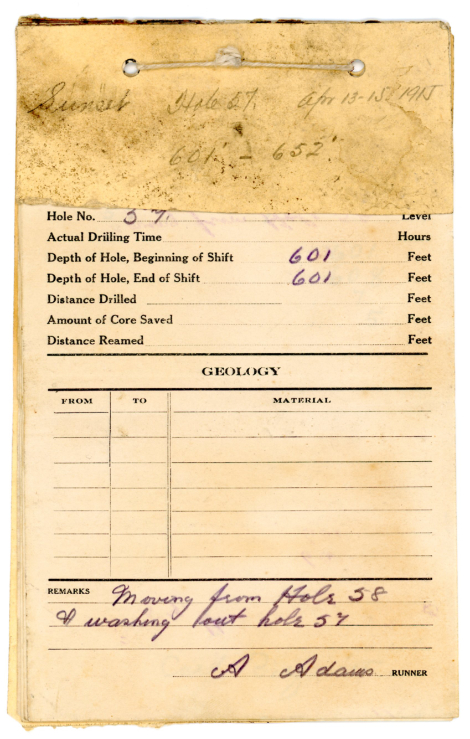 Sunset Hole 57. Apr 13-15 1915
601' - 652'
Hole No. 57. Level
Actual Drilling Time Hours
Depth of Hole, Beginning of Shift 601 Feet
Depth of Hole, End of Shift 601 Feet
Distance Drilled Feet
Amount of Core Saved Feet
Distance Reamed Feet
GEOLOGY
FROM TO MATERIAL
REMARKS Moving from Hole 58
& washing out hole 57
A Adams RUNNER